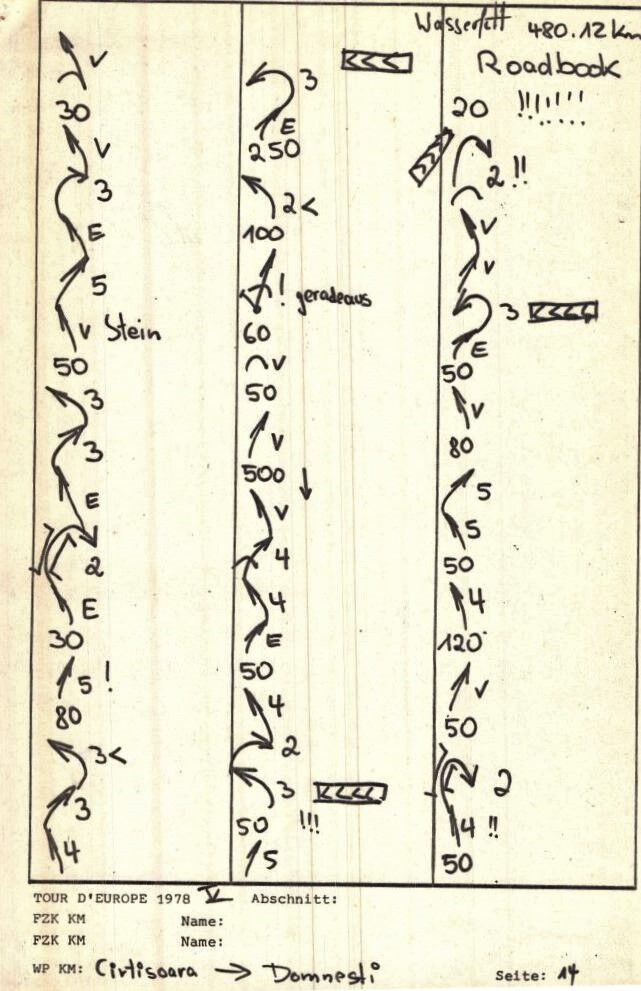 Wasserfall 480.12 Km
Roadbook
V
30
V
3
E
5
V Stein
50
3
3
E
2
E
30
5 !
80
3<
3
4
3
E
250
2<
100
! geradeaus
60
V
50
V
500
V
4
4
E
50
4
2
3
50 !!!
5
20 !!!!!!!
2 !!
V
V
3
E
50
V
80
5
5
50
4
120
V
50
2
4 !!
50
TOUR D'EUROPE 1978 V Abschnitt:
FZK KM Name:
FZK KM Name:
WP KM: Cirtisoara → Domnesti Seite: 14